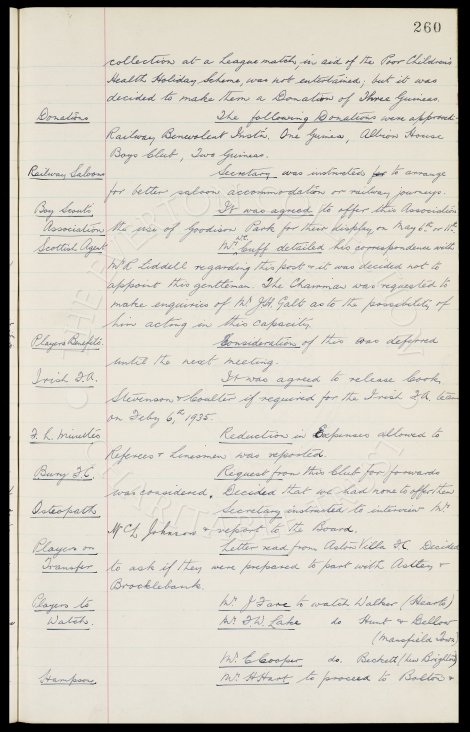 260
collection at a League match, in aid of the Poor Children's
Health Holiday Scheme, was not entertained; but it was
decided to make them a Donation of Three Guineas.
Donations The following Donations were approved:-
Railway Benevolent Instn. One Guinea, Albion House
Boys Club, Two Guineas.
Railway Saloons Secretary was instructed to arrange
for better saloon accommodation or railway journeys.
Boy Scouts It was agreed to offer this Association
Association the use of Goodison Park for their display on May 6th or 11th.
Scottish Agent Mr Cuff detailed his correspondence with
Mr R. Liddell regarding this post & it was decided not to
appoint this gentleman. The Chairman was requested to
make enquiries of Mr J.H. Galt as to the possibility of
him acting in this capacity.
Players Benefits. Consideration of this was deferred
until the next meeting.
Irish F.A. It was agreed to release Cook,
Stevenson & Coulter if required for the Irish F.A. team
on Feby 6th 1935.
F.L. Minutes Reduction in Expenses allowed to
Referees & Linesmen was reported.
Bury F.C. Request from this Club for forwards
was considered. Decided that we had none to offer them
Osteopath Secretary instructed to interview Mr
Johnson & report to the Board.
Players on Letter read from Aston Villa F.C. Decided
Transfer to ask if they were prepared to part with Astley &
Brocklebank.
Players to Mr J Fare to watch Walker (Hearts)
Watch. Mr F.W. Lake do Hunt & Bellow
(Mansfield Town)
Mr E Cooper do. Beckett (New Brighton)
Mr H Hart to proceed to Bolton &